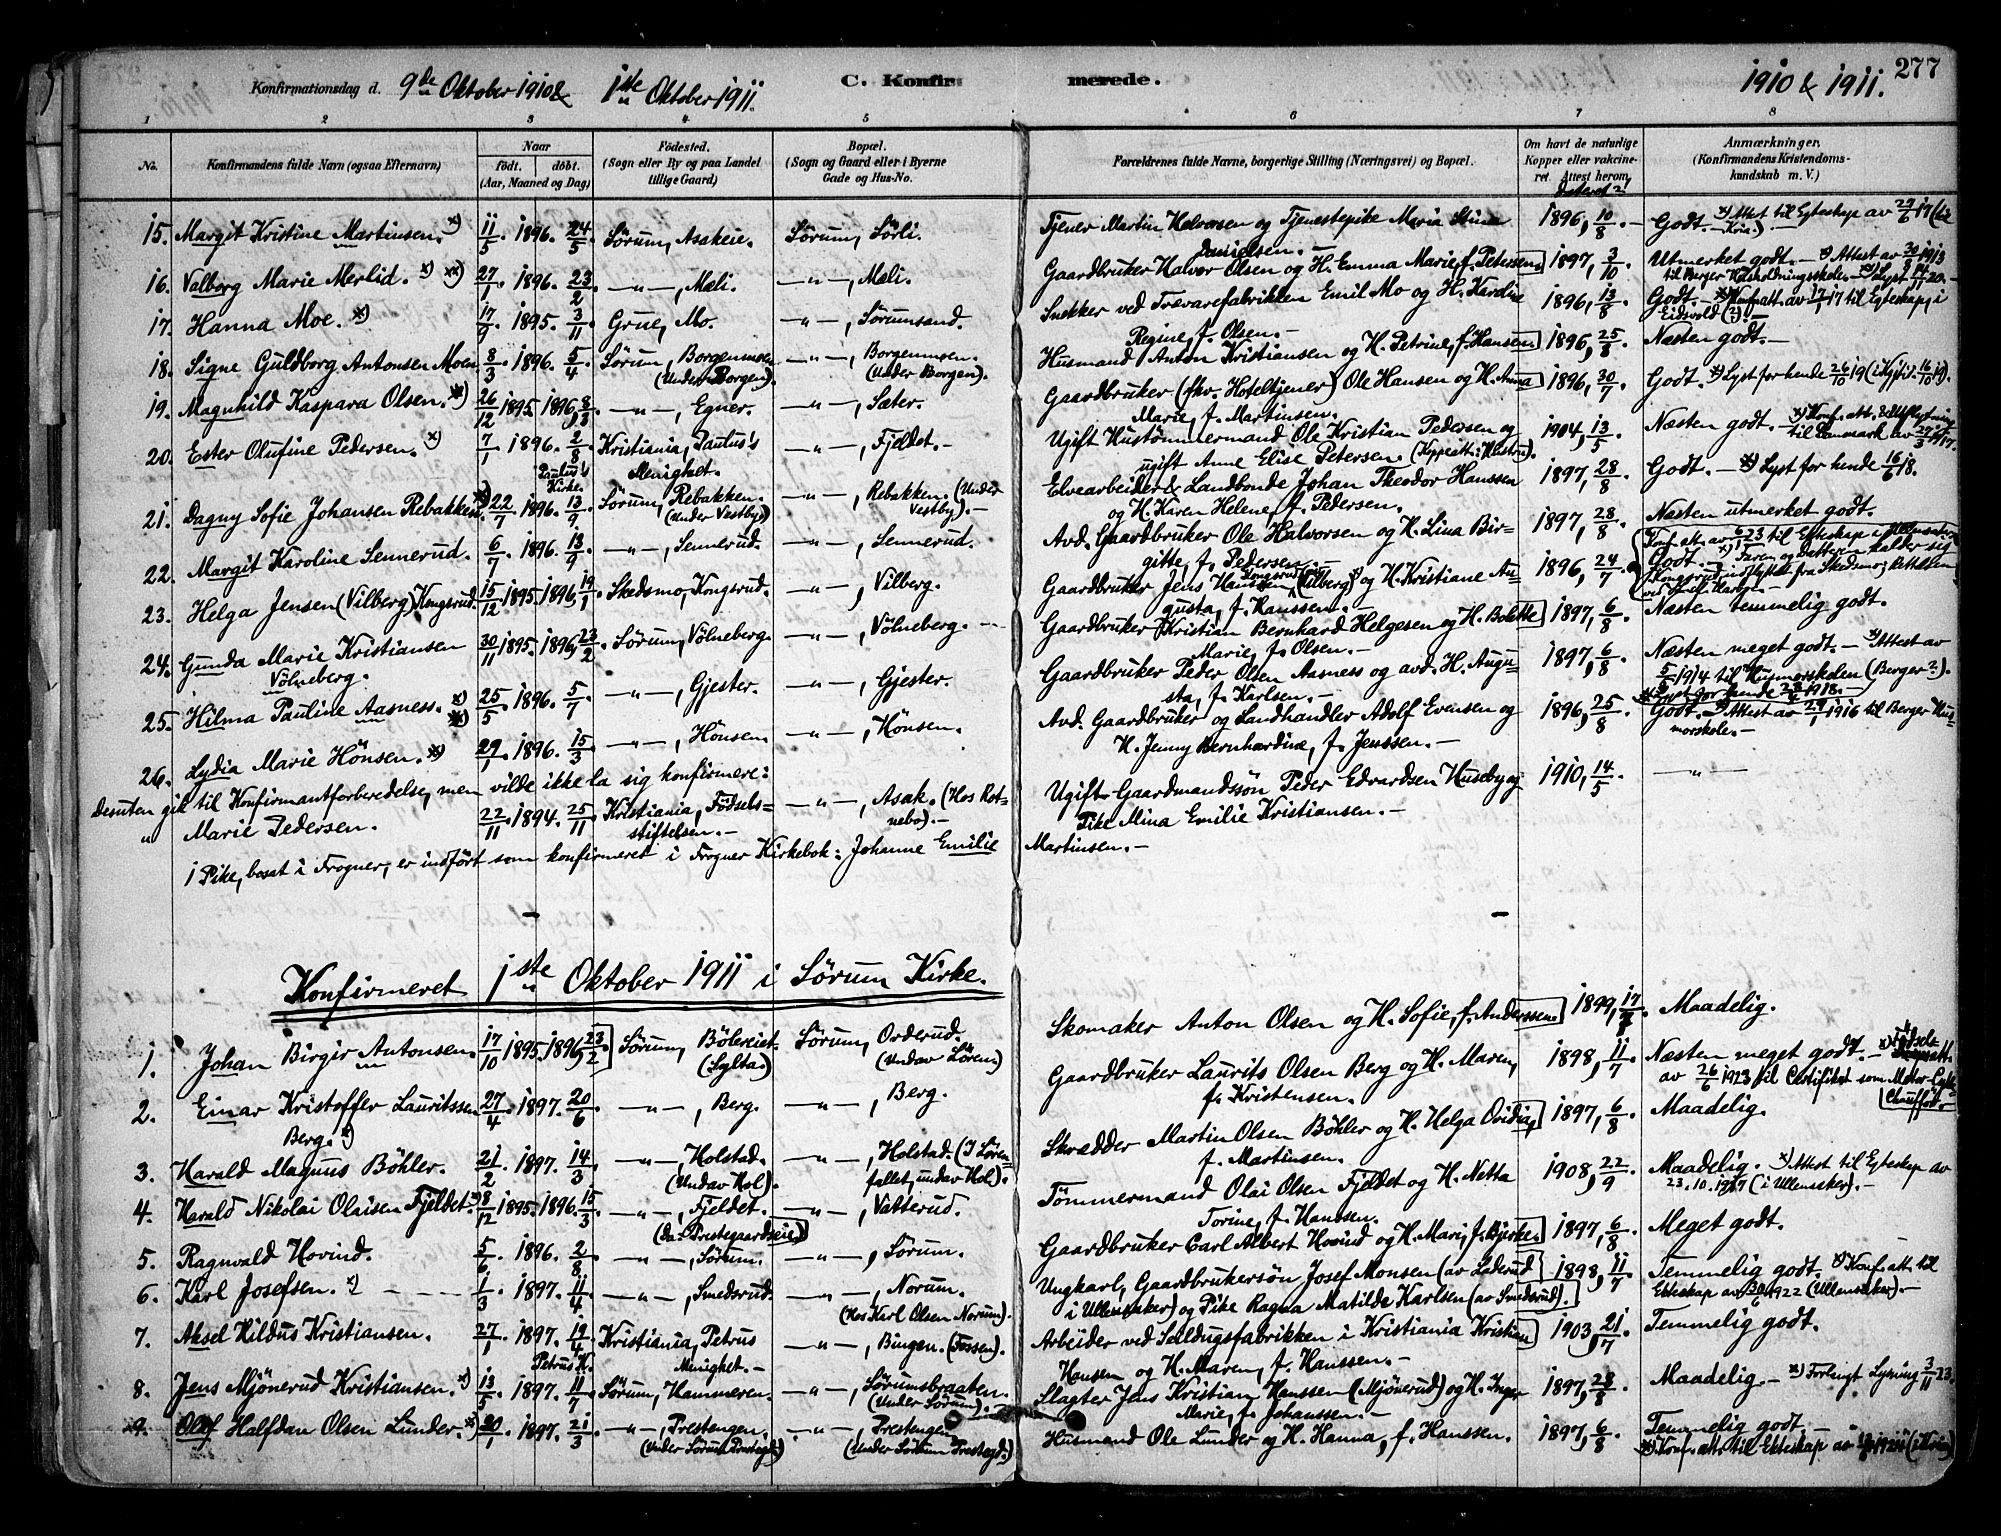 277
Konfirmationsdag d. 9de Oktober 1910 & 1ste Oktober 1911. C. Konfirmerede. 1910 & 1911.
1 2 3 4 5 6 7 8
No. Konfirmandens fulde Navn (ogsaa Efternavn) Naar født. døbt. (Aar, Maaned og Dag) Fødested. (Sogn eller By og paa Landet tillige Gaard) Bopæl. (Sogn og Gaard eller i Byerne Gade og Hus-No. Forældrenes fulde Navne, borgerlige Stilling (Næringsvei) og Bopæl. Om havt de naturlige Kopper eller vakcineret. Attest herom, dateret? Anmærkninger, (Konfirmandens Kristendomskundskab m. V.)
15. Margit Kristine Martinsen. x) 11/5. 1896. 24/5 Sörum, Asakeie. Sörum, Sörli. Tjener Martin Halvorsen og Tjenestepike Maria Stina Danielsen. 1896, 10/8. Godt. x) Attest til Egteskap av 29/6 17
16. Valborg Marie Merlid. x) xx) 27/1. 1896. 23/2 —"—, Mæli. —"—, Mæli. Gaardbruker Halvor Olsen og H. Emma Marie, f. Petersen. 1897, 3/10 Utmerket godt. x) Attest av 30/8 1913 til Berger Husholdningsskole.
17. Hanna Moe. x) 17/9. 1895. 3/11 Grue, Mo. —"—, Sörumsand. Snekker ved Trævarefabrikken Emil Mo og H. Karoline Regine, f. Olsen. 1896, 13/8 Godt. x) Konf.att. av 17/1 17 til Egteskap i Eidsvold (?).
18. Signe Guldborg Antonsen Moen 8/3. 1896. 5/4 Sörum, Borgenmoen (Under Borgen). —"—, Borgenmoen. (Under Borgen). Husmand Anton Kristiansen og H. Petrine, f. Hansen 1896, 25/8. Næsten godt.
19. Magnhild Kaspara Olsen. x) 26/12 1895 1896, 8/3. —"—, Egner. —"—, Sæter. Gaardbruker (fhv. Hoteltjener) Ole Hansen og H. Anna Marie, f. Martinsen. 1896, 30/7 Godt. x) Lyst for hende 26/10 19
20. Ester Olufine Pedersen. x) 7/1. 1896. 2/8 Paulus's Kirke. Kristiania, Paulus's Menighet. —"—, Fjeldet. Ugift Hustömmermand Ole Kristian Pedersen og ugift Anne Elise Petersen. 1904, 13/5 Næsten godt. x) Konf.att. t. Utflytning til Danmark av 27/3 1917.
21. Dagny Sofie Johansen Rebakken. x) 22/7 1896. 13/9. Sörum, Rebakken. (Under Vestby) —"—, Rebakken. (Under Vestby). Elvearbeider & Landbonde Johan Theodor Hanssen og H. Karen Helene, f. Pedersen. 1897, 28/8 Godt. x) Lyst for hende 16/6 18.
22. Margit Karoline Sennerud. 6/7. 1896. 13/9 —"—, Sennerud. —"—, Sennerud. Avd. Gaardbruker Ole Halvorsen og H. Lina Birgitte, f. Pedersen. 1897, 28/8. Næsten utmerket godt.
23. Helga Jensen (Vilberg) Kongsrud. 15/12. 1895. 1896, 19/1 Skedsmo, Kongsrud. —"—, Vilberg. Gaardbruker Jens Hanssen Kongsrud (Vilberg) x) og H. Kristiane Augusta, f. Hanssen. 1896, 24/7. Godt. x) Faren og datteren kalder sig Kongsrud, indflyttet fra Skedsmo;
24. Gunda Marie Kristiansen Völneberg. 30/11 1895. 1896, 23/2. Sörum, Völneberg. —"—, Völneberg. Gaardbruker Kristian Bernhard Helgesen og H. Bolette Marie, f. Olsen. 1897, 6/8. Næsten temmelig godt.
25. Hilma Pauline Aasness. x) xx) 25/5. 1896. 5/7 —"—, Gjester. —"—, Gjester. Gaardbruker Peder Olsen Aasness og avd. H. Augusta, f. Karlsen. 1897, 6/8. Næsten meget godt. x) Attest av 5/5 1914 til Husmorskolen (Berger?).
26. Lydia Marie Hönsen. x) 29/1. 1896. 15/3 —"—, Hönsen. —"—, Hönsen. Avd. Gaardbruker og Landhandler Adolf Evensen og H. Jenny Bernhardine, f. Jenssen. 1896, 25/8. Godt. x) Attest av 29/1 1916 til Berger Husmorskole.
Desuten gik til Konfirmantforberedelse, men vilde ikke la sig konfirmere:
" Marie Pedersen. 22/11. 1894. 25/11 Kristiania, Födselsstiftelsen. —"—, Asak. (Hos Rotnebo). Ugift Gaardmandssön Peder Edvardsen Huseby og Pike Mina Emilie Kristiansen. 1910, 14/5. —"—
1 Pike, bosat i Frogner, er indfört som konfirmeret i Frogner Kirkebok: Johanne Emilie Martinsen.
Konfirmeret 1ste Oktober 1911 i Sörum Kirke.
1. Johan Birgir Antonsen. 17/10 1895. 1896, 23/2 Sörum, Bölereiet. (Sylta) Sörum, Orderud. (Undav Sören) Skomaker Anton Olsen og H. Sofie, f. Anderssen 1899, 17/7. Maadelig.
2. Einar Kristoffer Lauritssen Berg. x) 27/4. 1897. 20/6 —"—, Berg. —"—, Berg. Gaardbruker Laurits Olsen Berg og H. Maren, f. Kristensen. 1898, 11/7 Næsten meget godt. x) Födselsatt. av 26/6 1923 til Certifikat som Motor-Cykle Chauffør.
3. Harald Magnus Böhler. 21/2 1897. 14/3 —"—, Holstad. (Undav Hol). —"—, Holstad. (I Sörenfallet, undav Hol). Skrædder Martin Olsen Böhler og H. Helga Ovidia, f. Martinsen. 1897, 6/8 Maadelig.
4. Harald Nikolai Olaisen Fjeldet. x) 8/12 1895. 1896. 15/3 —"—, Fjeldet. (Da: Prestegaardseie) —"—, Vatterud. Tömmermand Olai Olsen Fjeldet og H. Netta Torine, f. Hanssen. 1908, 22/9 Maadelig. x) Attest til Egteskap av 23.10.1917 (i Ullensaker).
5. Ragnvald Hovind. 5/6. 1896. 2/8 —"—, Sörum. —"—, Sörum. Gaardbruker Carl Albert Hovind og H. Mari, f. Bjerke. 1897, 6/8. Meget godt.
6. Karl Josefsen. x) 1/3 1897. 11/4 —"—, Smedsrud. —"—, Norum. (Hos Karl Olsen Norum). Ungkarl, Gaardbrukersön Josef Monsen (av Laderud i Ullensaker) og Pike Ragna Matilde Karlsen (av Smedsrud). 1898, 11/7 Temmelig godt. x) Konf.att. til Ekteskap av 30/6 1922 (Ullensaker).
7. Aksel Hildus Kristiansen. 27/1. 1897. 19/4 Petrus K. Kristiania, Petrus Menighet. —"—, Bingen. (Fossen). Arbeider ved Seildugsfabrikken i Kristiania Kristian Hansen og H. Maren, f. Hanssen. 1903, 21/7. Temmelig godt.
8. Jens Mjönerud Kristiansen. x) 13/5. 1897. 11/7 Sörum, Hammeren. —"—, Sörumsbraaten. (Under Sörum). Slagter Jens Kristian Hanssen (Mjönerud) og H. Inger Marie, f. Johanssen. 1897, 28/8 Maadelig. x) Forlengt Lysning 3/11 23.
9. Olaf Halfdan Olsen Lunder. x) 20/1. 1897. 21/3 —"—, Prestengen. (Under Sörum Prestegd.) —"—, Prestengen. (Under Sörum Prestegd.) Husmand Ole Lunder og H. Hanna, f. Hanssen. 1897, 6/8 Temmelig godt. x) Konf. att. til Ekteskap av